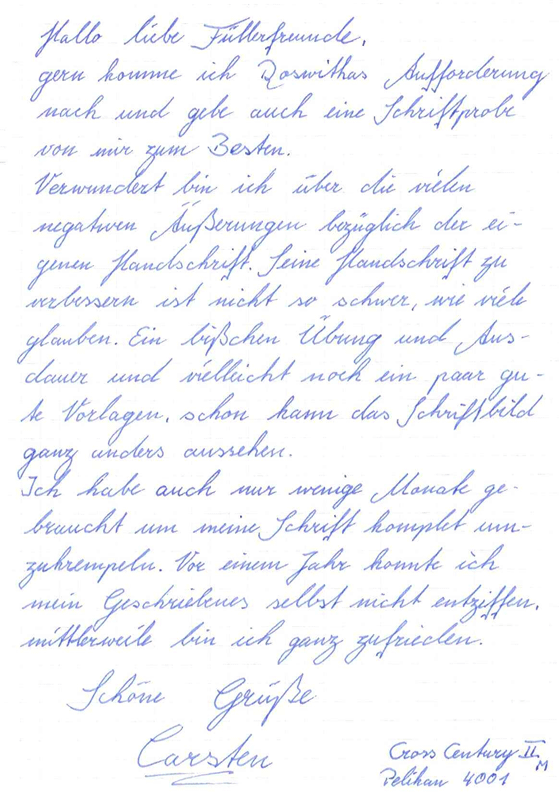 Hallo liebe Füllerfreunde,
gern komme ich Roswithas Aufforderung
nach und gebe auch eine Schriftprobe
von mir zum Besten.
Verwundert bin ich über die vielen
negativen Äußerungen bezüglich der ei-
genen Handschrift. Seine Handschrift zu
verbessern ist nicht so schwer, wie viele
glauben. Ein bißchen Übung und Aus-
dauer und vielleicht noch ein paar gu-
te Vorlagen, schon kann das Schriftbild
ganz anders aussehen.
Ich habe auch nur wenige Monate ge-
braucht um meine Schrift komplet um-
zukrempeln. Vor einem Jahr konnte ich
mein Geschriebenes selbst nicht entziffen,
mittlerweile bin ich ganz zufrieden.
Schöne Grüße
Carsten
Cross Century II M
Pelikan 4001